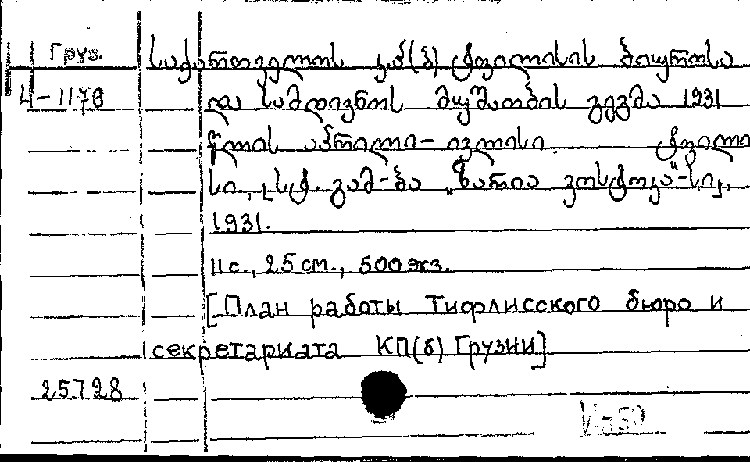 Груз. საქართველოს კპ(ბ) ტფილისის ბიუროსა
4-1178 და სამდივნოს მუშაობის გეგმა 1931
წლის აპრილი-ივლისი. ტფილი
სი, [სტ. გამ-ბა „ზარია ვოსტოკა"-სი],
1931.
11 с., 25 см., 500 экз.
[План работы Тифлисского бюро и
секретариата КП(б) Грузии]
25728